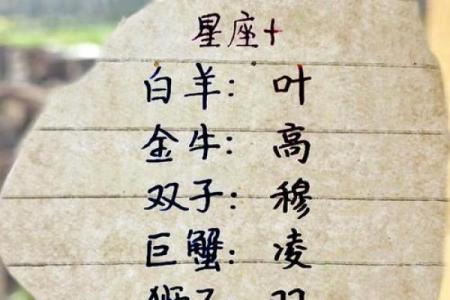 星座+
白羊：叶
金牛：高
双子：穆
巨蟹：凌
狮子：